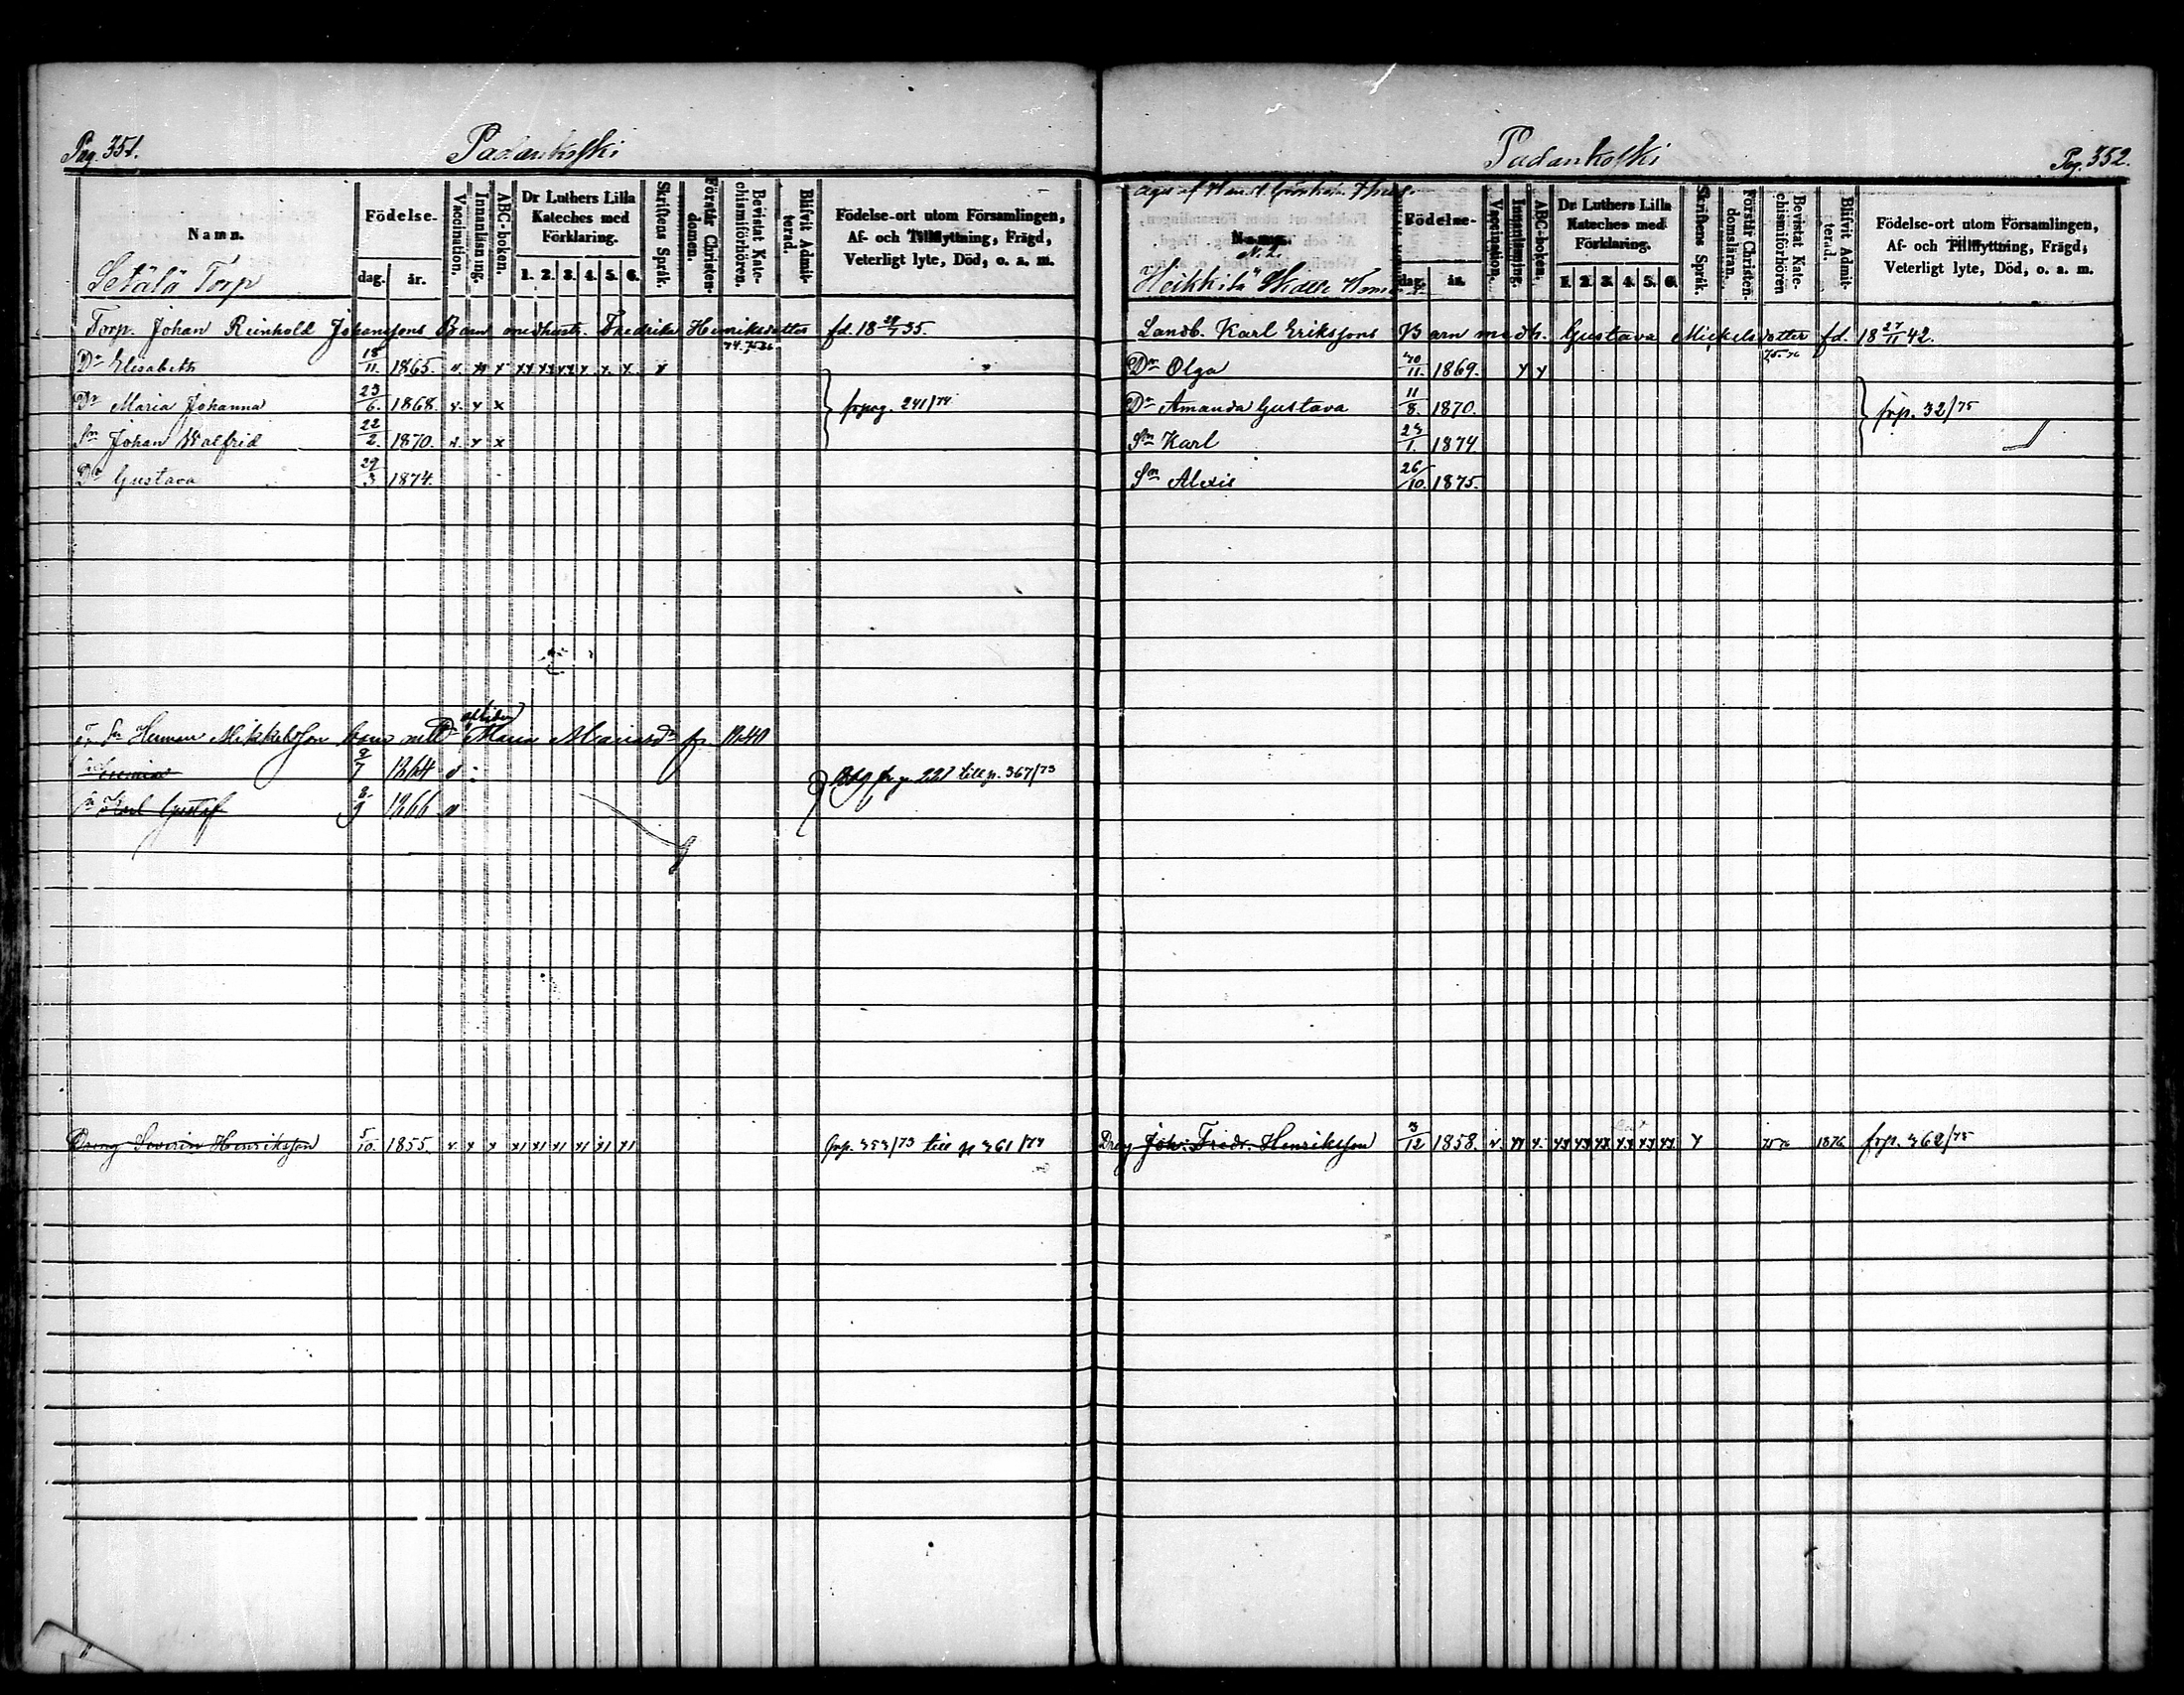 Pag. 351.
Padankoski
Namn.
Födelse-
dag.
år.
Vaccination.
Innanläsning.
ABC-boken.
Dr Luthers Lilla Kateches med Förklaring.
1. 2. 3. 4. 5. 6.
Skriftens Språk.
Förstår Christen-domen.
Bevistat Kate-chismiförhören.
Blifvit Admit-terad.
Födelse-ort utom Församlingen,
Af- och Tillflyttning, Frägd,
Veterligt lyte, Död, o. a. m.
Setälä Torp
Torp. Johan Reinhold Johanssons Barn med hust. Fredrika Henriksdotter fd. 18 35.
Dr Elisabeth 18/11 1865. v. x x xx xx xx x. x. x. x 74. 75
Dr Maria Johanna 23/6. 1868. v. x x frpag. 241/74
Sn Johan Walfrid 22/2. 1870. v. x x
Dr Gustava 29/3 1874.
Sn Herman Mikkelsson barn Maria 1840
7 1864 v till p. 367/73
Sn Karl Gustaf 8/9 1866 v
Dreng Severin Henriksson 5/10. 1855. v. x x x1 x1 x1 x1 x1 x1 frp. 353/73 till p 361/74
Padankoski
Pag. 352.
Namn.
N. 2.
Födelse-
dag.
år.
Vaccination.
Innanläsning.
ABC-boken.
Dr Luthers Lilla Kateches med Förklaring.
1. 2. 3. 4. 5. 6.
Skriftens Språk.
Förstår Christen-domsläran.
Bevistat Kate-chismiförhören
Blifvit Admit-terad.
Födelse-ort utom Församlingen,
Af- och Tillflyttning, Frägd,
Veterligt lyte, Död, o. a. m.
Heikkilä
Landb. Karl Erikssons Barn med h. Gustava Mickelsdotter fd. 18 27/11 42.
Dr Olga /11. 1869. x x 75. 76
Dr Amanda Gustava 11/8. 1870. frp. 32/75
Sn Karl /1. 1874.
Sn Alexis 26/10. 1875.
Dreng Joh. Fredr. Henriksson 3/12 1858. v. xx x. xx xx xx xx xx xx. x 1876 frp. 362/75